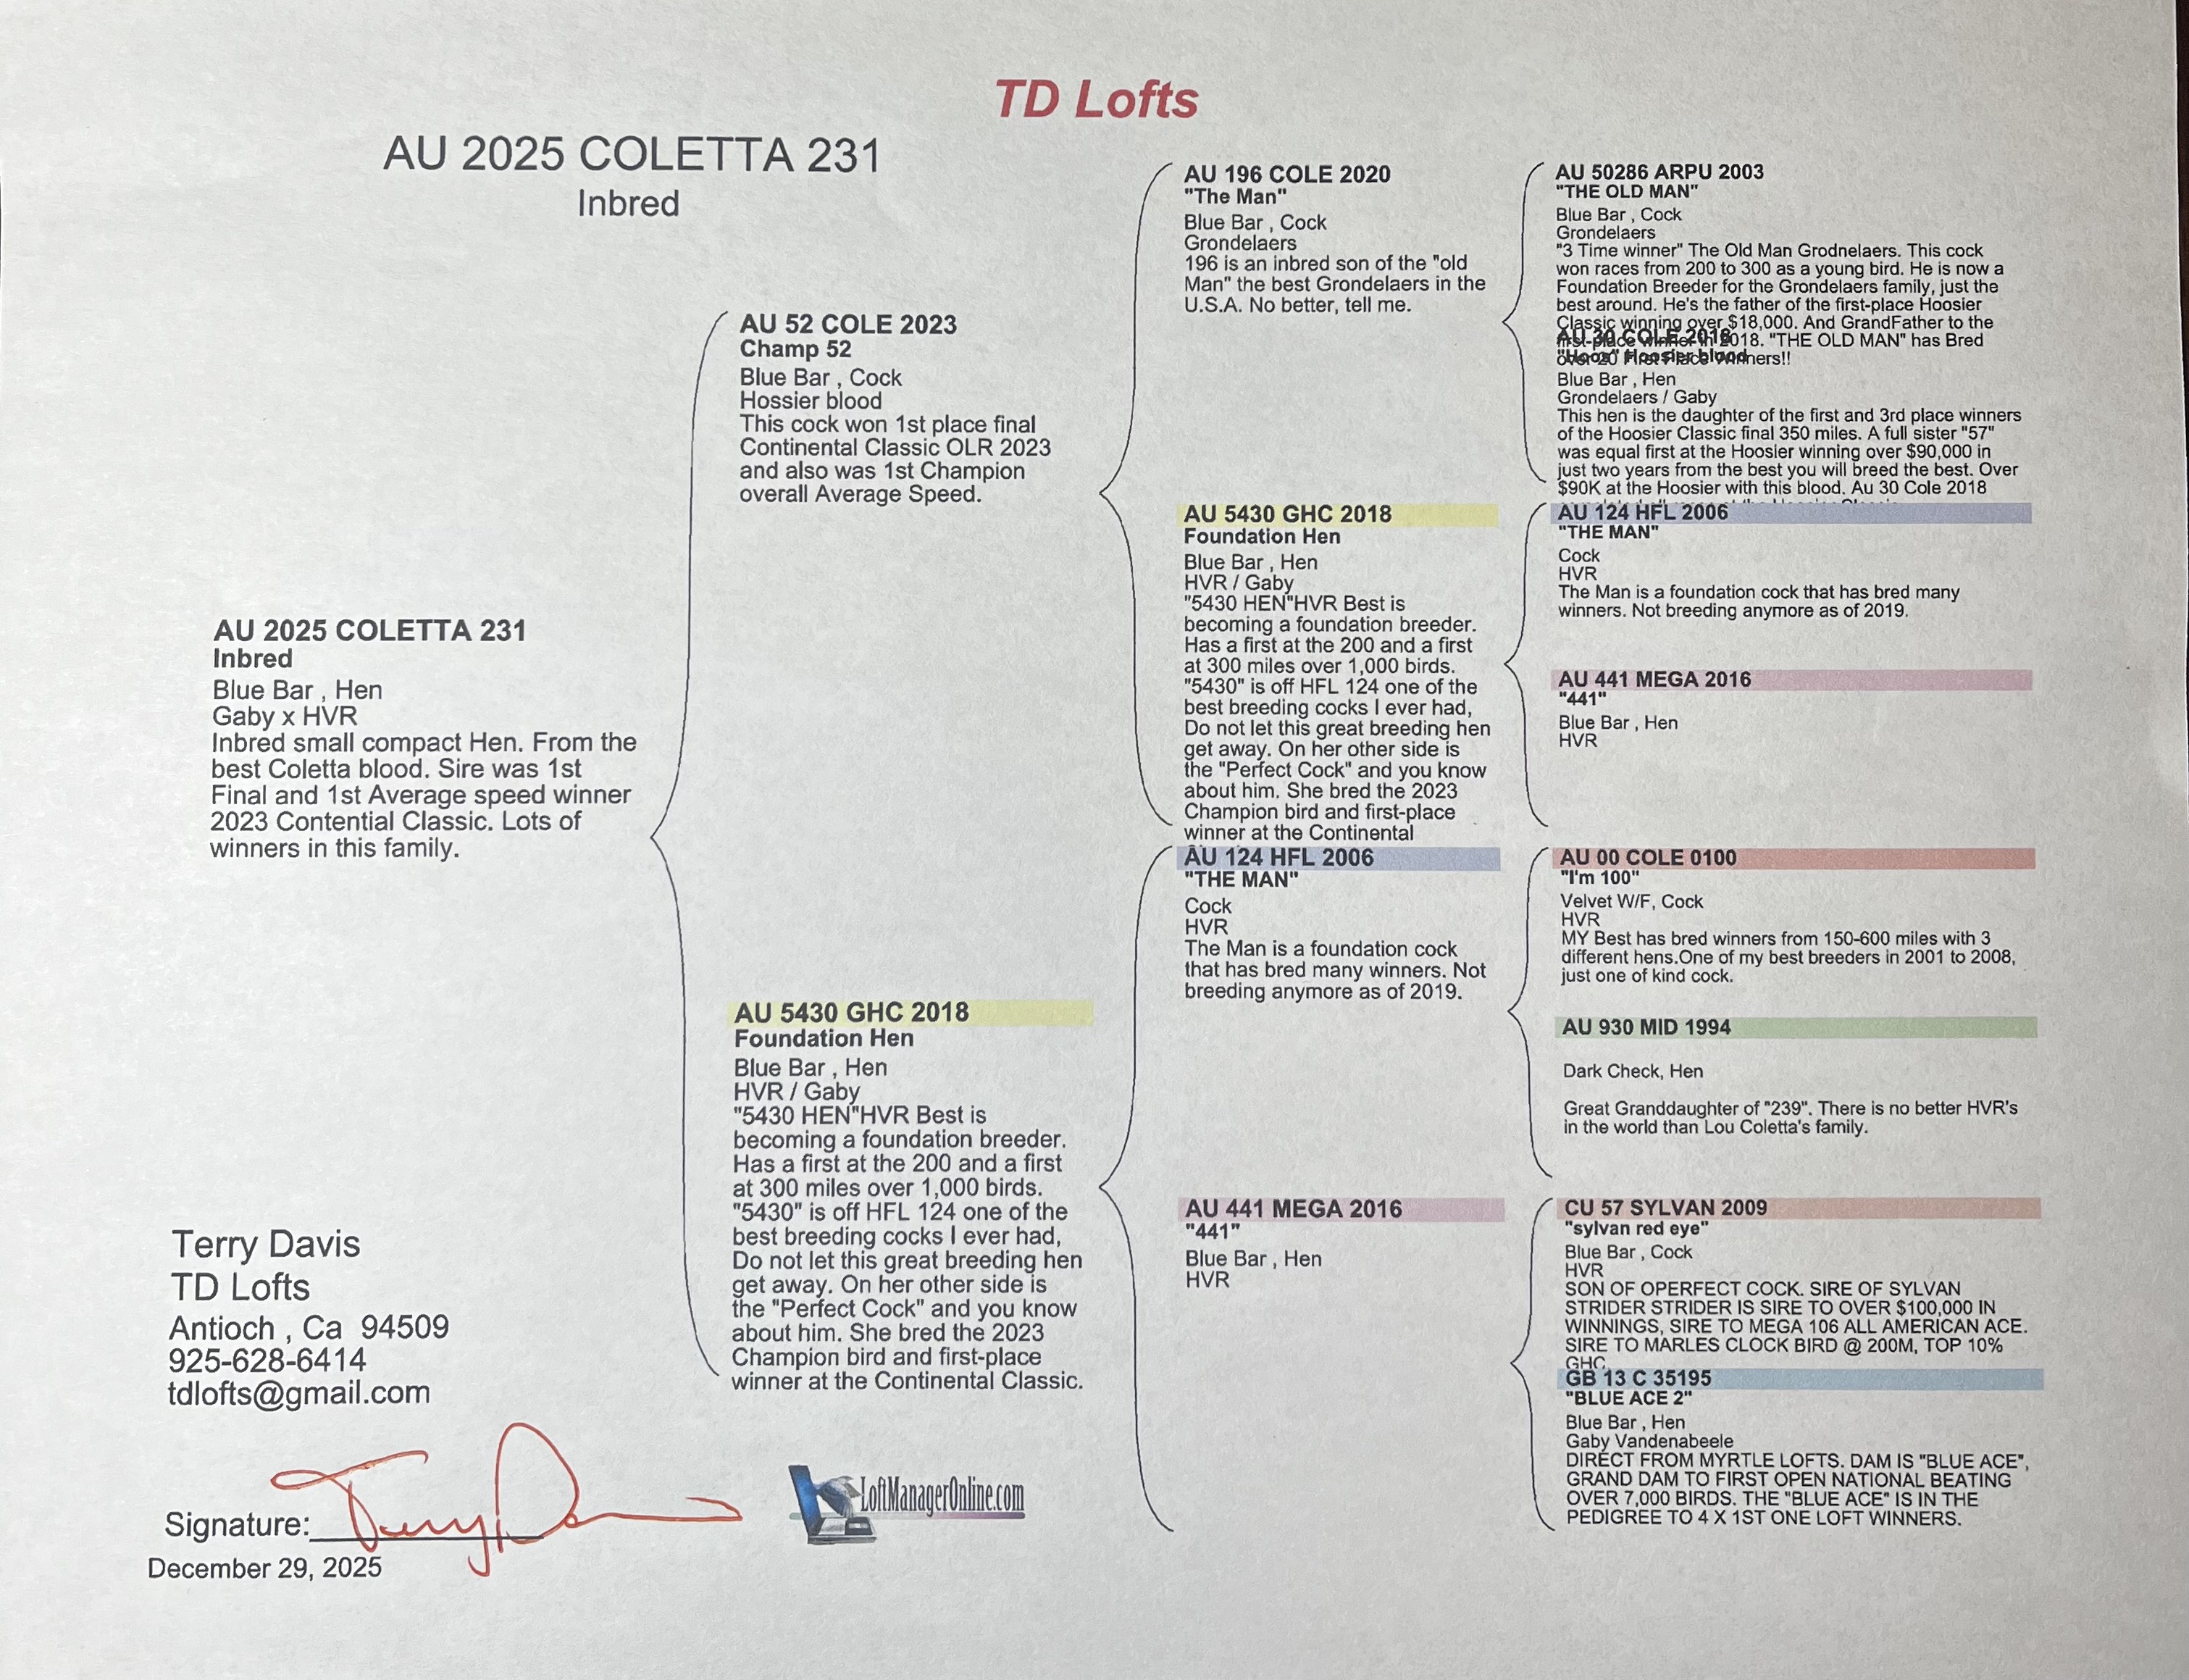 TD Lofts
AU 2025 COLETTA 231
Inbred
AU 2025 COLETTA 231
Inbred
Blue Bar , Hen
Gaby x HVR
Inbred small compact Hen. From the
best Coletta blood. Sire was 1st
Final and 1st Average speed winner
2023 Contential Classic. Lots of
winners in this family.
Terry Davis
TD Lofts
Antioch , Ca 94509
925-628-6414
tdlofts@gmail.com
Signature:
Terry Davis
December 29, 2025
AU 52 COLE 2023
Champ 52
Blue Bar , Cock
Hossier blood
This cock won 1st place final
Continental Classic OLR 2023
and also was 1st Champion
overall Average Speed.
AU 5430 GHC 2018
Foundation Hen
Blue Bar , Hen
HVR / Gaby
"5430 HEN"HVR Best is
becoming a foundation breeder.
Has a first at the 200 and a first
at 300 miles over 1,000 birds.
"5430" is off HFL 124 one of the
best breeding cocks I ever had,
Do not let this great breeding hen
get away. On her other side is
the "Perfect Cock" and you know
about him. She bred the 2023
Champion bird and first-place
winner at the Continental Classic.
LoftManagerOnline.com
AU 196 COLE 2020
"The Man"
Blue Bar , Cock
Grondelaers
196 is an inbred son of the "old
Man" the best Grondelaers in the
U.S.A. No better, tell me.
AU 5430 GHC 2018
Foundation Hen
Blue Bar , Hen
HVR / Gaby
"5430 HEN"HVR Best is
becoming a foundation breeder.
Has a first at the 200 and a first
at 300 miles over 1,000 birds.
"5430" is off HFL 124 one of the
best breeding cocks I ever had,
Do not let this great breeding hen
get away. On her other side is
the "Perfect Cock" and you know
about him. She bred the 2023
Champion bird and first-place
winner at the Continental
AU 124 HFL 2006
"THE MAN"
Cock
HVR
The Man is a foundation cock
that has bred many winners. Not
breeding anymore as of 2019.
AU 441 MEGA 2016
"441"
Blue Bar , Hen
HVR
AU 50286 ARPU 2003
"THE OLD MAN"
Blue Bar , Cock
Grondelaers
"3 Time winner" The Old Man Grodnelaers. This cock
won races from 200 to 300 as a young bird. He is now a
Foundation Breeder for the Grondelaers family, just the
best around. He's the father of the first-place Hoosier
Classic winning over $18,000. And GrandFather to the
first-place winner in 2018. "THE OLD MAN" has Bred
over 20 First Place Winners!!
AU 30 COLE 2018
"Hoos" Hoosier blood
Blue Bar , Hen
Grondelaers / Gaby
This hen is the daughter of the first and 3rd place winners
of the Hoosier Classic final 350 miles. A full sister "57"
was equal first at the Hoosler winning over $90,000 in
just two years from the best you will breed the best. Over
$90K at the Hoosier with this blood. Au 30 Cole 2018
AU 124 HFL 2006
"THE MAN"
Cock
HVR
The Man is a foundation cock that has bred many
winners. Not breeding anymore as of 2019.
AU 441 MEGA 2016
"441"
Blue Bar , Hen
HVR
AU 00 COLE 0100
"I'm 100"
Velvet W/F, Cock
HVR
MY Best has bred winners from 150-600 miles with 3
different hens.One of my best breeders in 2001 to 2008,
just one of kind cock.
AU 930 MID 1994
Dark Check, Hen
Great Granddaughter of "239". There is no better HVR's
in the world than Lou Coletta's family.
CU 57 SYLVAN 2009
"sylvan red eye"
Blue Bar , Cock
HVR
SON OF OPERFECT COCK. SIRE OF SYLVAN
STRIDER STRIDER IS SIRE TO OVER $100,000 IN
WINNINGS, SIRE TO MEGA 106 ALL AMERICAN ACE.
SIRE TO MARLES CLOCK BIRD @ 200M, TOP 10%
GHC
GB 13 C 35195
"BLUE ACE 2"
Blue Bar , Hen
Gaby Vandenabeele
DIRECT FROM MYRTLE LOFTS. DAM IS "BLUE ACE",
GRAND DAM TO FIRST OPEN NATIONAL BEATING
OVER 7,000 BIRDS. THE "BLUE ACE" IS IN THE
PEDIGREE TO 4 X 1ST ONE LOFT WINNERS.